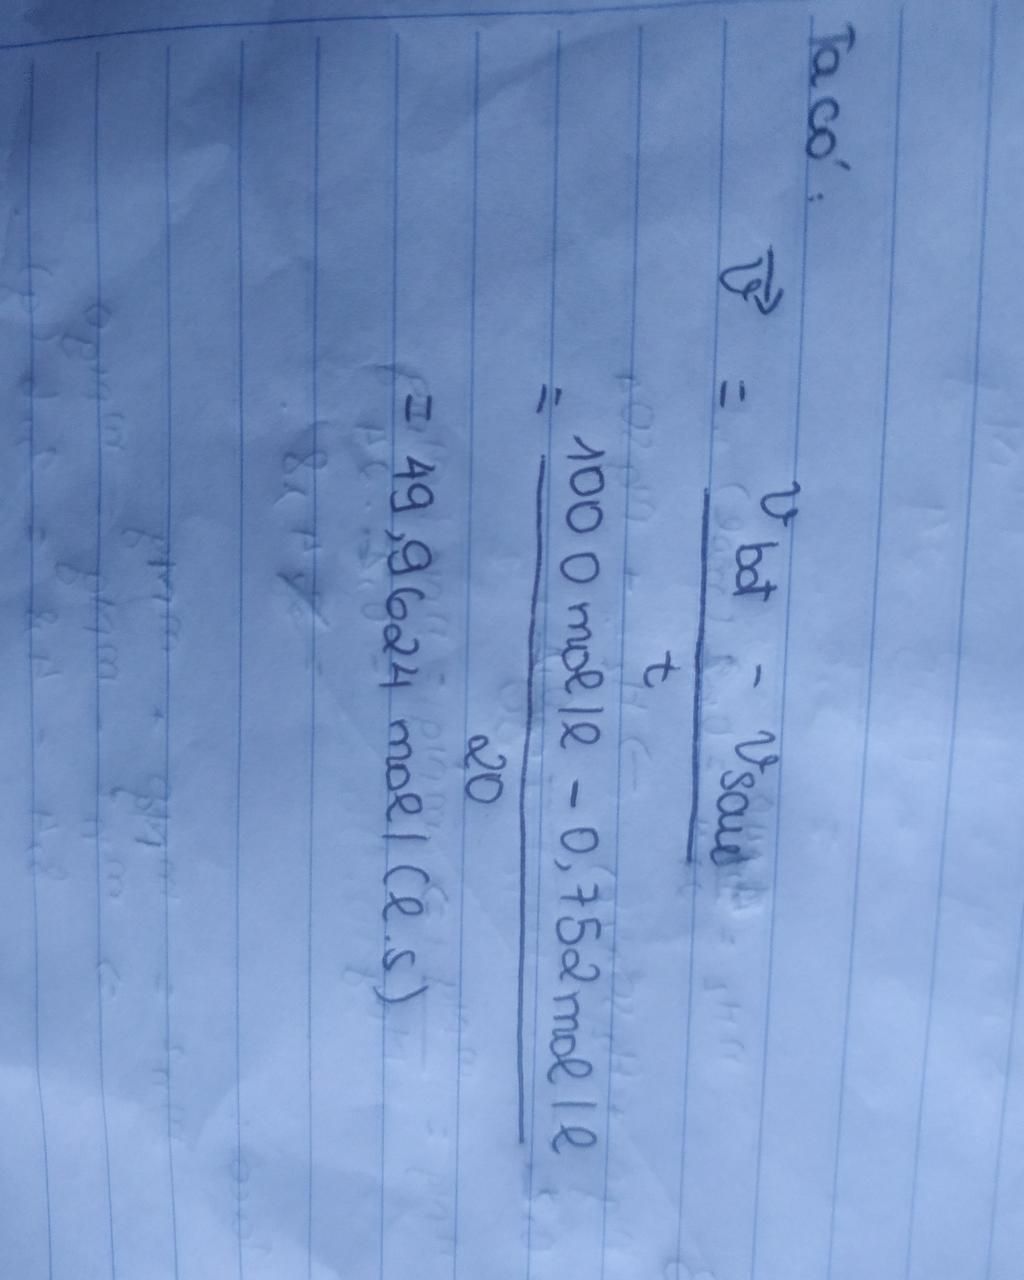 Ta có:
v⃗ = v bđ - v sau
t
= 1000 mol/l - 0,752 mol/l
20
= 49,9624 mol/(l.s)